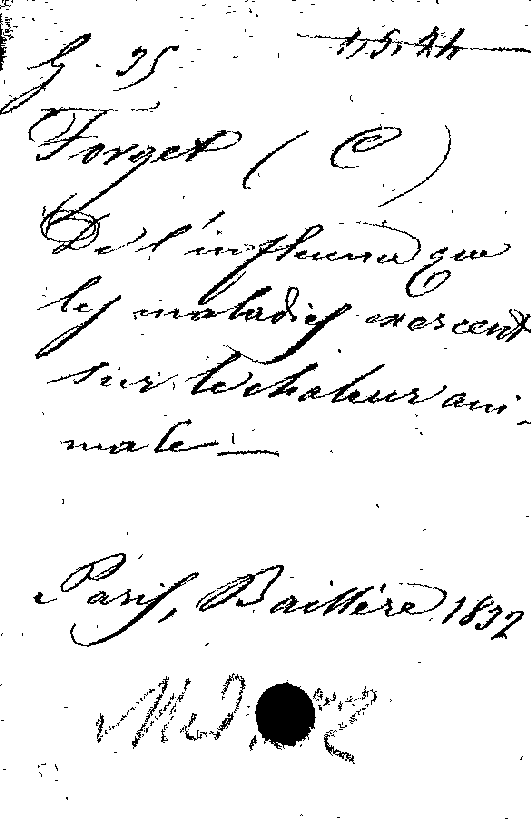 G. 25 4, 5, 24
Forget (C)
De l'influence que
les maladies exercent
sur la chaleur ani-
male —
Paris, Baillière 1832
Med.